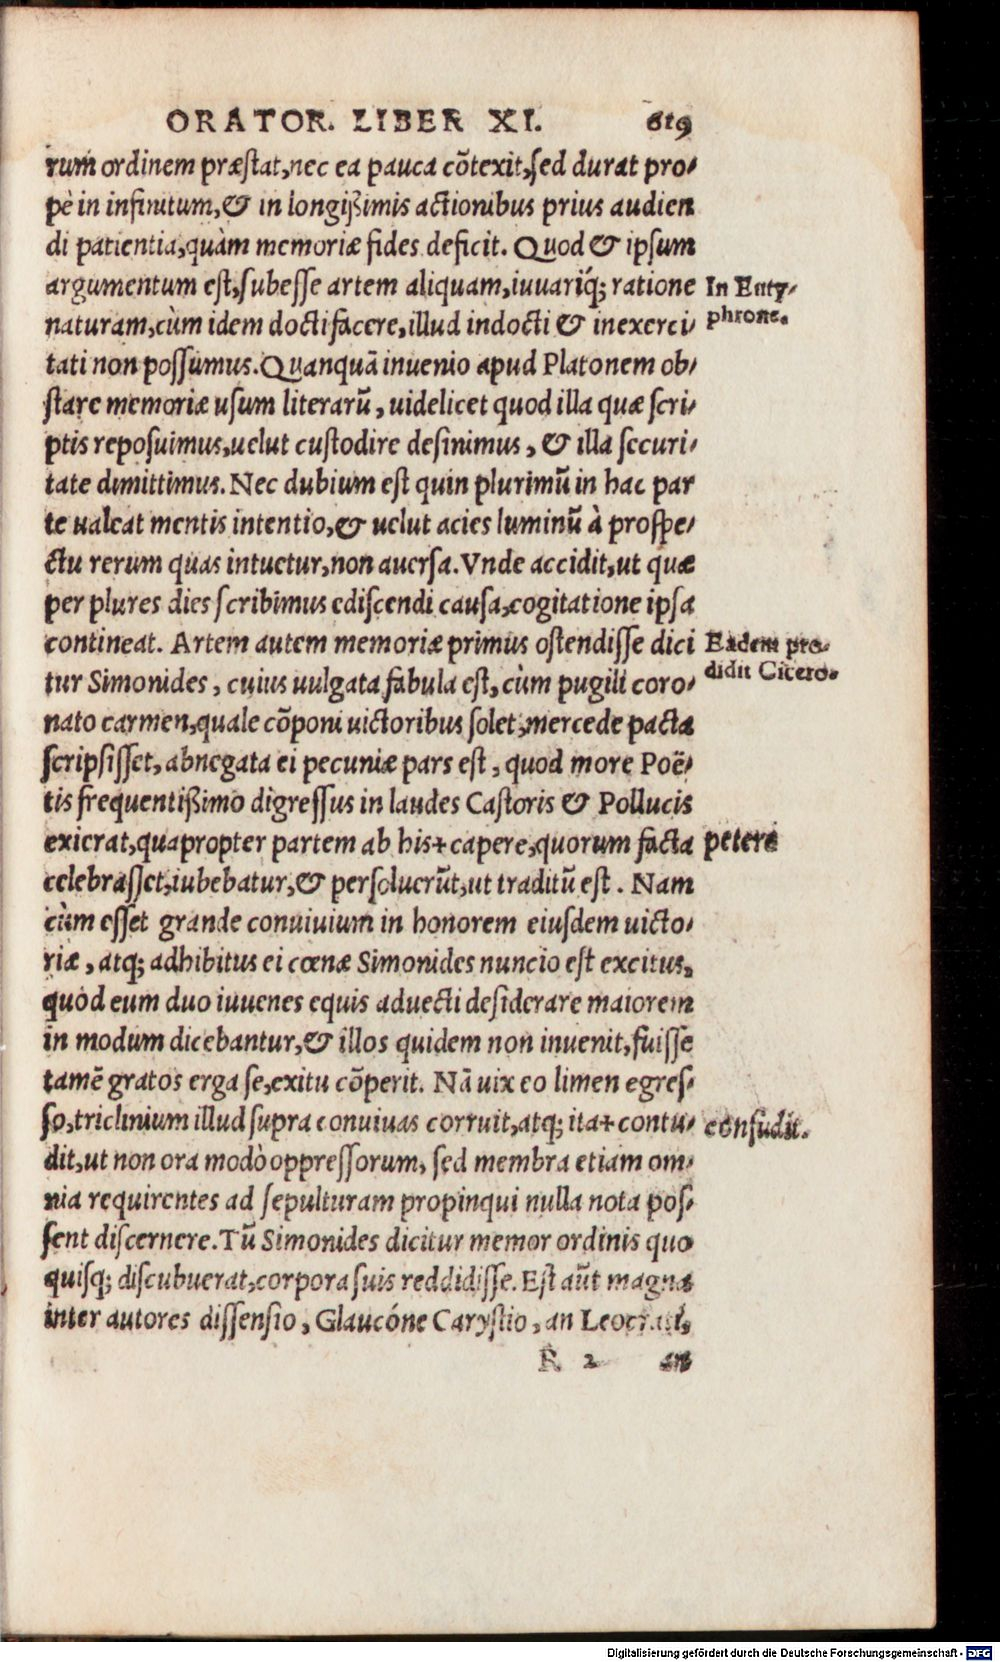 ORATOR. LIBER XI. 619
rum ordinem præstat, nec ea pauca cōtexit, sed durat pro-
pè in infinitum, & in longißimis actionibus prius audien
di patientia, quàm memoriæ fides deficit. Quod & ipsum
argumentum est, subesse artem aliquam, iuuariq́; ratione
In Euty-
naturam, cùm idem docti facere, illud indocti & inexerci-
phrone.
tati non possumus. Quanquā inuenio apud Platonem ob-
stare memoriæ usum literarū, uidelicet quod illa quæ scri-
ptis reposuimus, uelut custodire desinimus, & illa securi-
tate dimittimus. Nec dubium est quin plurimū in hac par
te ualeat mentis intentio, & uelut acies luminū à prospe-
ctu rerum quas intuetur, non auersa. Vnde accidit, ut quæ
per plures dies scribimus ediscendi causa, cogitatione ipsa
contineat. Artem autem memoriæ primus ostendisse dici
Eadem pro-
tur Simonides, cuius uulgata fabula est, cùm pugili coro-
didit Cicero.
nato carmen, quale cōponi uictoribus solet, mercede pacta
scripsisset, abnegata ei pecuniæ pars est, quod more Poë-
tis frequentißimo digressus in laudes Castoris & Pollucis
exierat, quapropter partem ab his+ capere, quorum facta
petere
celebrasset, iubebatur, & persoluerūt, ut traditū est. Nam
cùm esset grande conuiuium in honorem eiusdem uicto-
riæ, atq; adhibitus ei cœnæ Simonides nuncio est excitus,
quòd eum duo iuuenes equis aduecti desiderare maiorem
in modum dicebantur, & illos quidem non inuenit, fuisse
tamē gratos erga se, exitu cōperit. Nā uix eo limen egres-
so, triclinium illud supra conuiuas corruit, atq; ita+ contu-
confudit.
dit, ut non ora modò oppressorum, sed membra etiam om-
nia requirentes ad sepulturam propinqui nulla nota pos-
sent discernere. Tū Simonides dicitur memor ordinis quo
quisq; discubuerat, corpora suis reddidisse. Est aūt magna
inter autores dissensio, Glaucóne Carystio, an Leocrati,
R 2 an
Digitalisierung gefördert durch die Deutsche Forschungsgemeinschaft - DFG